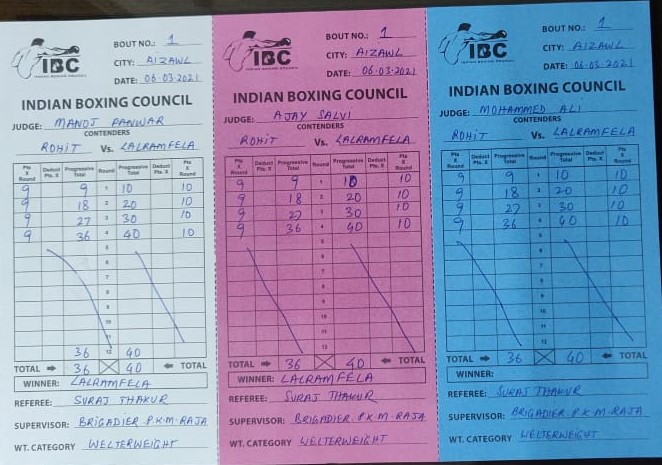 IBC
INDIAN BOXING COUNCIL
BOUT NO.: 1
CITY: AIZAWL
DATE: 06-03-2021
INDIAN BOXING COUNCIL
JUDGE: MANOJ PANWAR
CONTENDERS
ROHIT Vs. LALRAMFELA
Pts X Round Deduct Pts. X Progressive Total Round Progressive Total Deduct Pts. X Pts X Round
9 9 1 10 10
9 18 2 20 10
9 27 3 30 10
9 36 4 40 10
5
6
7
8
9
10
11
36 12 40
TOTAL 36 40 TOTAL
WINNER: LALRAMFELA
REFEREE: SURAJ THAKUR
SUPERVISOR: BRIGADIER P.K.M. RAJA
WT. CATEGORY WELTERWEIGHT
IBC
INDIAN BOXING COUNCIL
BOUT NO.: 1
CITY: AIZAWL
DATE: 06-03-2021
INDIAN BOXING COUNCIL
JUDGE: AJAY SALVI
CONTENDERS
ROHIT Vs. LALRAMFELA
Pts X Round Deduct Pts. X Progressive Total Round Progressive Total Deduct Pts. X Pts X Round
9 9 1 10 10
9 18 2 20 10
9 27 3 30 10
9 36 4 40 10
5
6
7
8
9
10
11
12
TOTAL 36 40 TOTAL
WINNER: LALRAMFELA
REFEREE: SURAJ THAKUR
SUPERVISOR: BRIGADIER P.K.M. RAJA
WT. CATEGORY WELTERWEIGHT
IBC
INDIAN BOXING COUNCIL
BOUT NO.: 1
CITY: AIZAWL
DATE: 06-03-2021
INDIAN BOXING COUNCIL
JUDGE: MOHAMMED ALI
CONTENDERS
ROHIT Vs. LALRAMFELA
Pts X Round Deduct Pts. X Progressive Total Round Progressive Total Deduct Pts. X Pts X Round
9 9 1 10 10
9 18 2 20 10
9 27 3 30 10
9 36 4 40 10
5
6
7
8
9
10
11
12
TOTAL 36 40 TOTAL
WINNER:
REFEREE: SURAJ THAKUR
SUPERVISOR: BRIGADIER P.K.M. RAJA
WT. CATEGORY WELTERWEIGHT